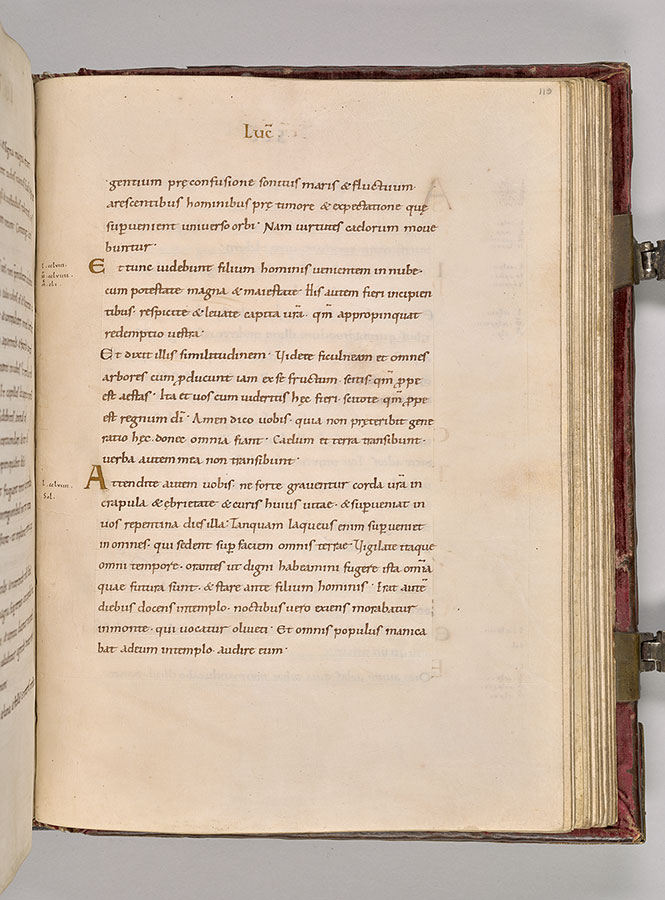 119
Luc̄
gentium pręconfusione sonitus maris & fluctuum·
arescentibus hominibus prę timore & expectatione quę
supuenient universo orbi· Nam uirtutes caelorum moue
buntur·
Et tunc uidebunt filium hominis uenientem in nube·
cum potestate magna & maiestate· His autem fieri incipien
tibus· respicite & leuate capita ur̄a· qm̄ appropinquat
redemptio uestra·
Et dixit illis similitudinem· Videte ficulneam et omnes
arbores cum p̄ducunt iam ex se fructum· scitis· qm̄ p̄pe
est aestas· Ita et uos cum uideritis hęc fieri· scitote qm̄ p̄pe
est regnum dī· Amen dico uobis· quia non pręteribit gene
ratio hęc· donec omnia fiant· Caelum et terra transibunt·
uerba autem mea non transibunt·
Attendite autem uobis· ne forte grauentur corda ur̄a in
crapula & ębrietate & curis huius uitae· & supueniat in
uos repentina dies illa· Tanquam laqueus enim supueniet
in omnes· qui sedent sup faciem omnis terrae· Vigilate itaque
omni tempore· orantes ut digni habeamini fugere ista om̄ia
quae futura sunt· & stare ante filium hominis· Erat autē
diebus docens intemplo· noctibus uero exiens morabatur
inmonte· qui uocatur oliueti· Et omnis populus manica
bat adeum intemplo· audire eum·